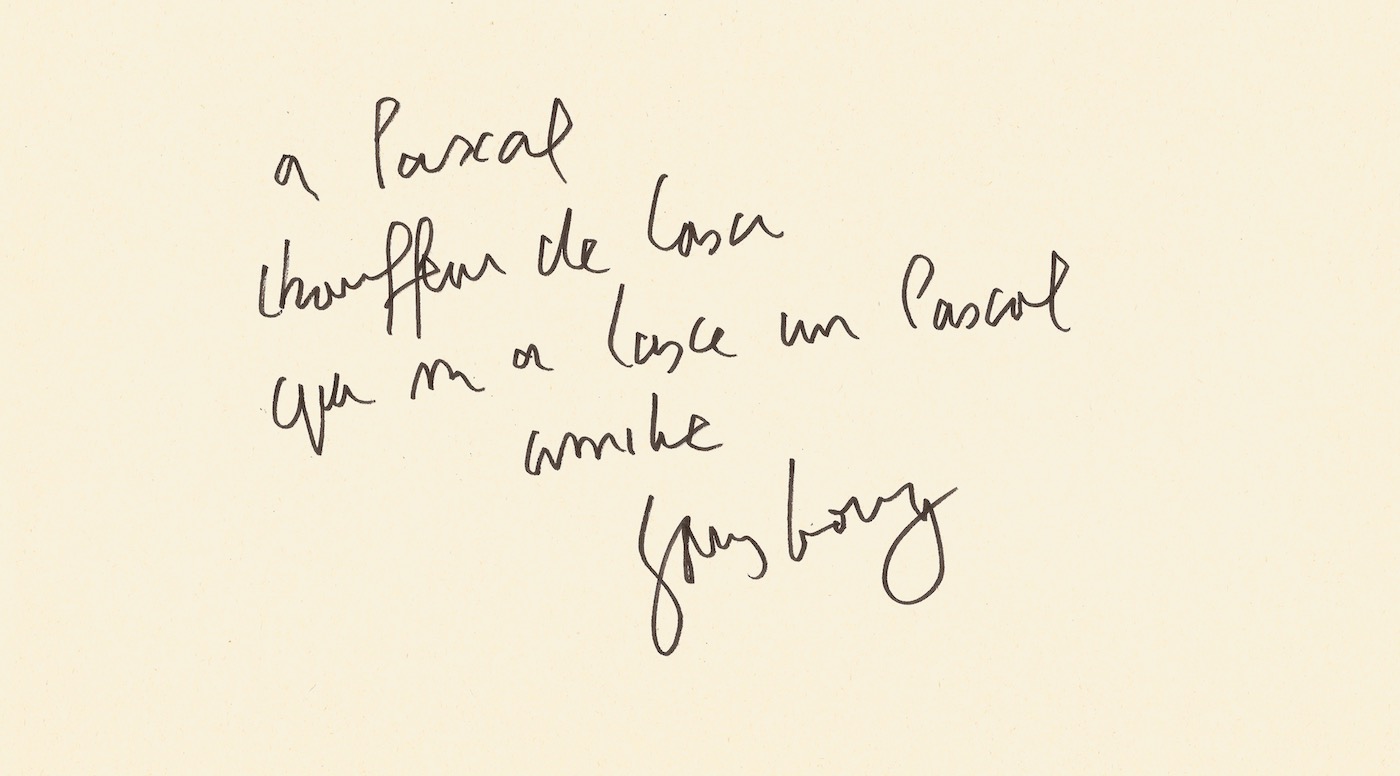 a Pascal
chauffeur de Casa
qui m a casse un Pascal
amitie
Gainsbourg